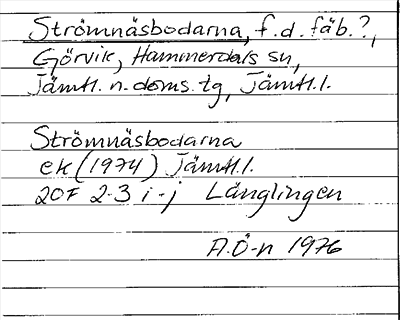 Strömnäsbodarna, f.d. fäb.?,
Görvik, Hammerdals sn,
Jämtl. n. doms. tg, Jämtl. l.
Strömnäsbodarna
ek (1974) Jämtl. l.
20F 2-3 i-j Långlingen
A.Ö-n 1976